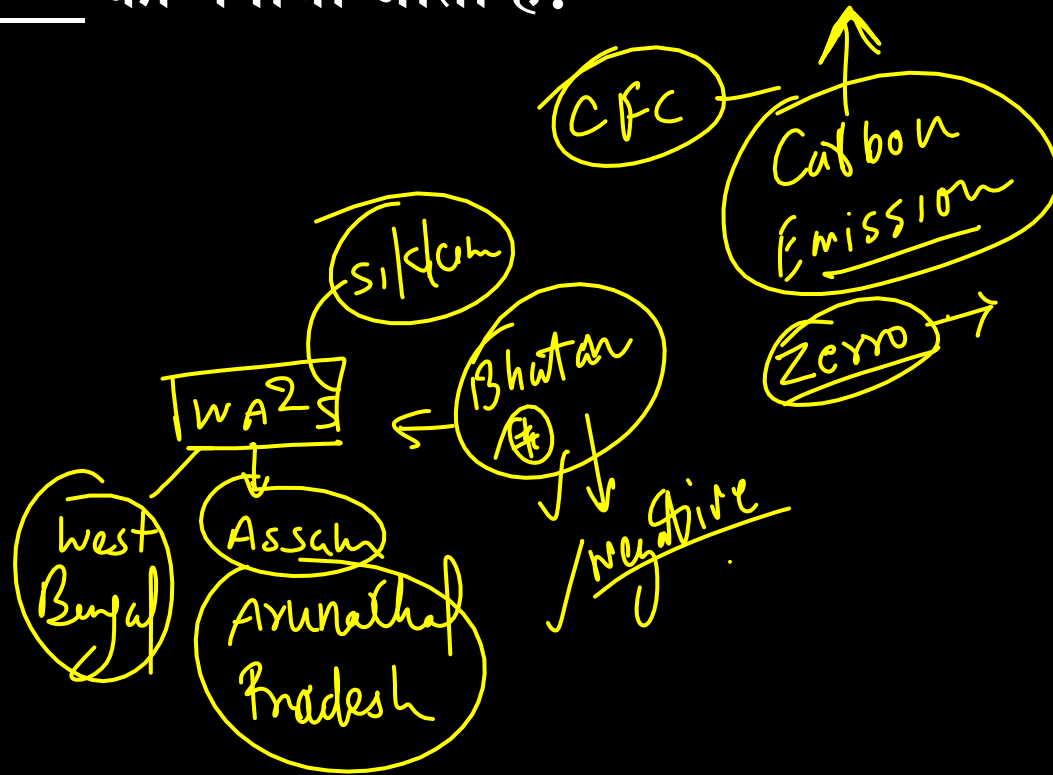 जाता है?
CFC
Carbon
Emission
Sikkim
Zerro
Bhutan
WA²S
negative
West
Bengal
Assam
Arunachal
Pradesh